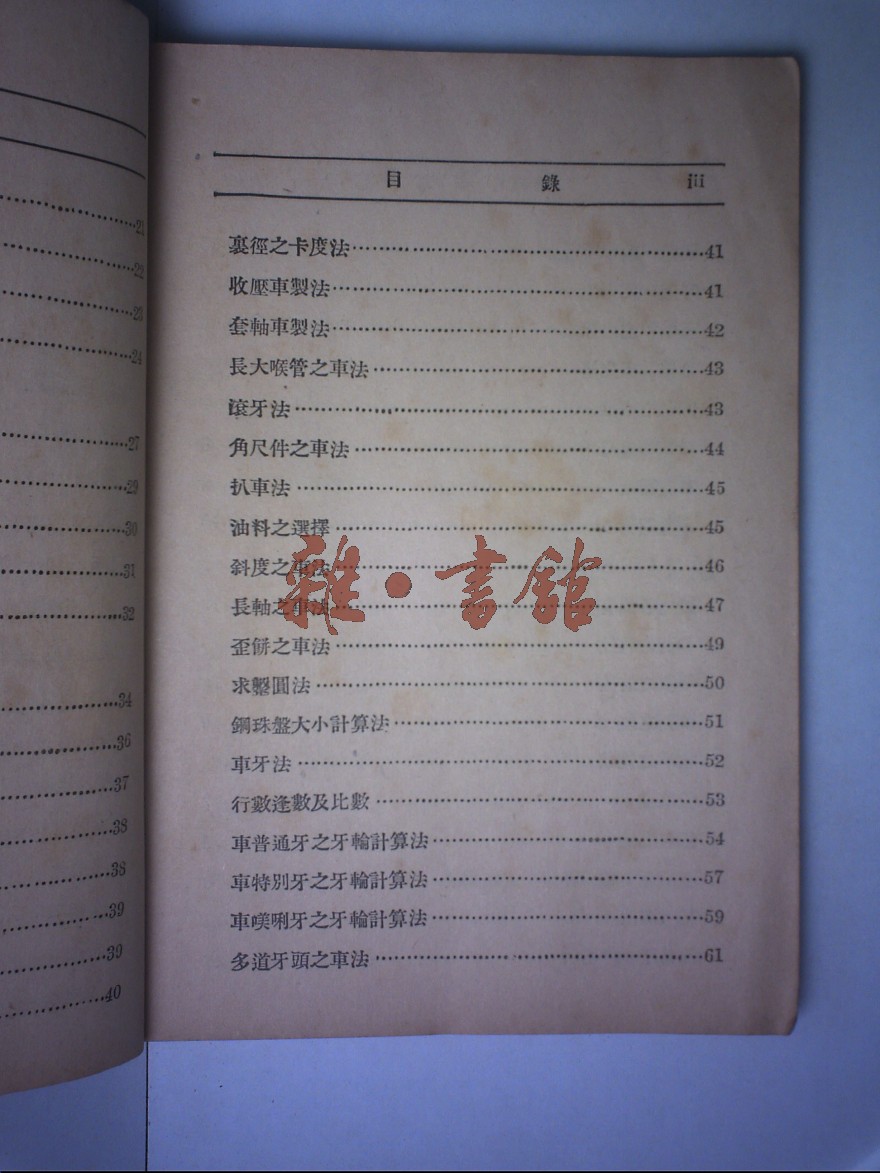 21
22
23
24
27
29
30
31
32
34
36
37
38
38
39
39
40
目 錄 iii
裏徑之卡度法 41
收壓車製法 41
套軸車製法 42
長大喉管之車法 43
滾牙法 43
角尺件之車法 44
扒車法 45
油料之選擇 45
斜度之車法 46
長軸之車法 47
歪餅之車法 49
求鑿圓法 50
鋼珠盤大小計算法 51
車牙法 52
行數逢數及比數 53
車普通牙之牙輪計算法 54
車特別牙之牙輪計算法 57
車嘆唎牙之牙輪計算法 59
多道牙頭之車法 61
雜·書館